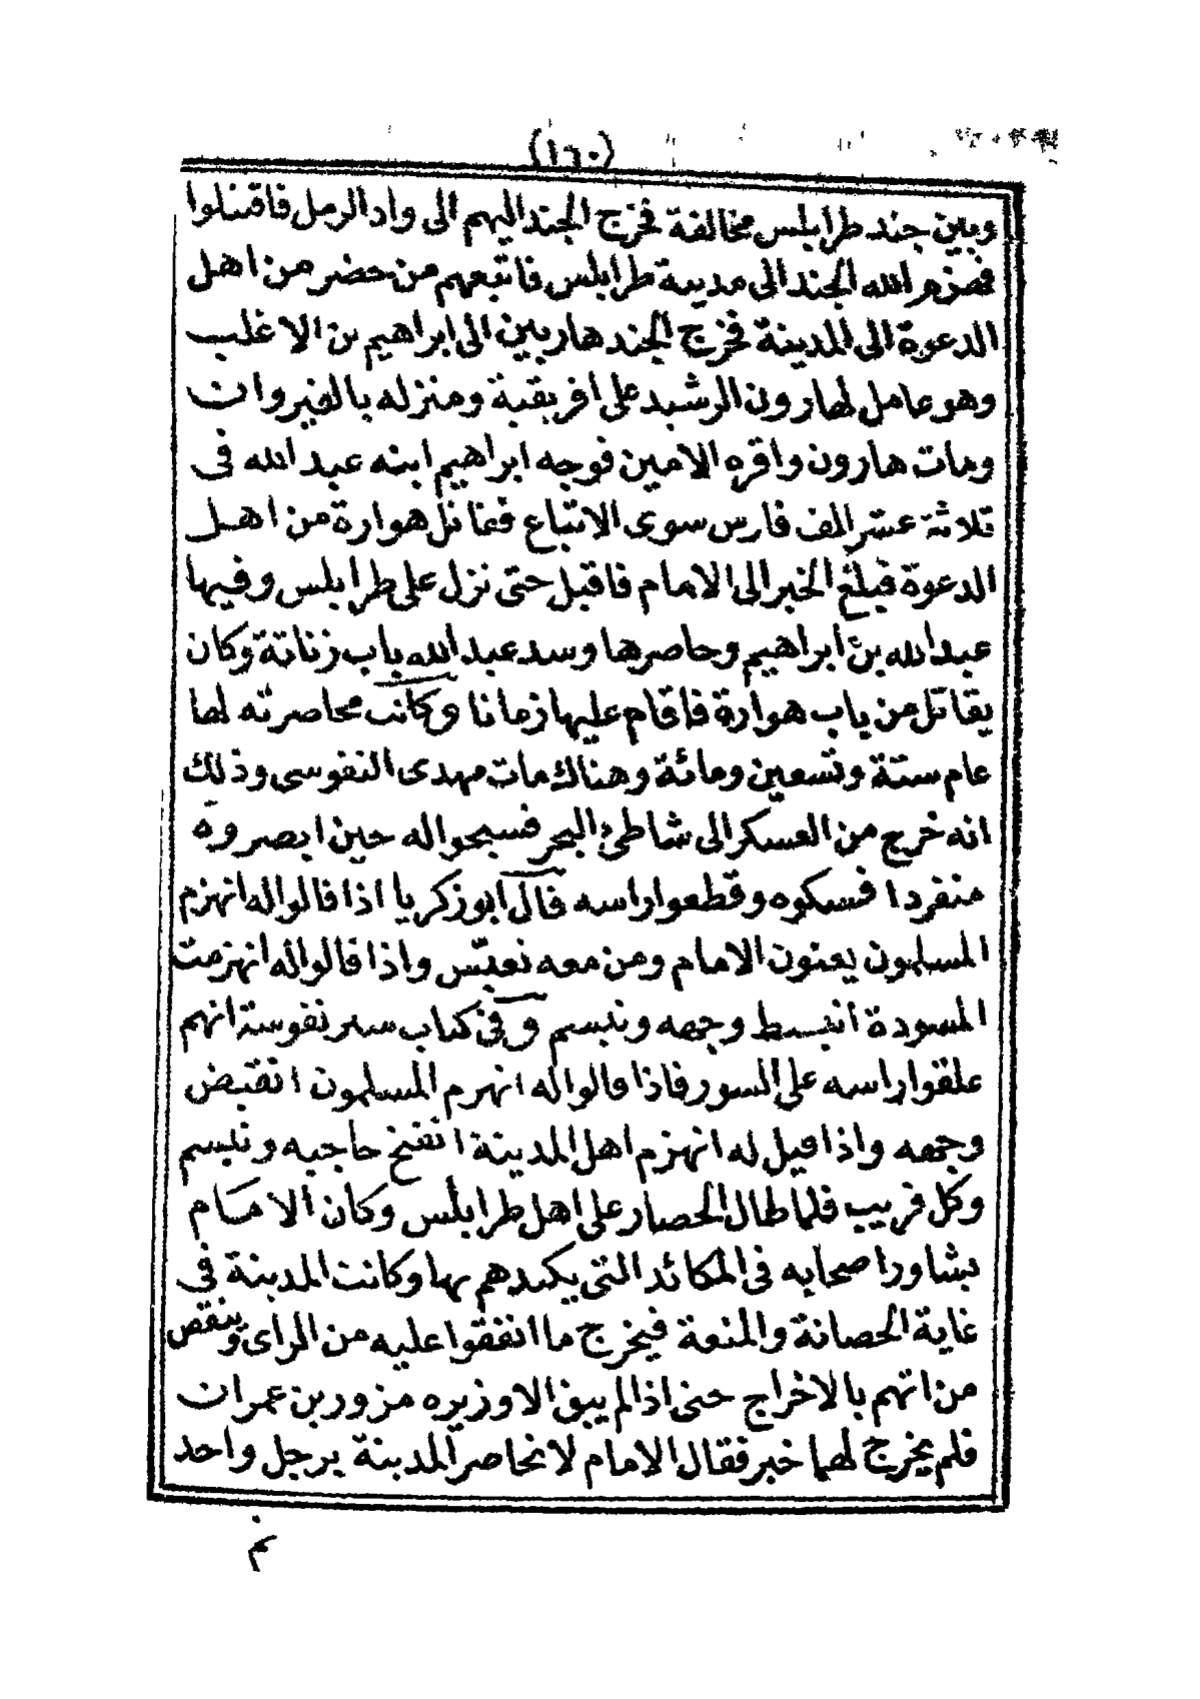 (١٦٠)
وبين جند طرابلس مخالفة فخرج الجند اليهم الى واد الرمل فاقتتلوا
فهزم الله الجند الى مدينة طرابلس فاتبعهم من حضر من اهل
الدعوة الى المدينة فخرج الجند هاربين الى ابراهيم بن الاغلب
وهو عامل لهارون الرشيد على افريقية ومنزله بالقيروان
ومات هارون واقره الامين فوجه ابراهيم ابنه عبد الله فى
ثلاثة عشر الف فارس سوى الاتباع فقاتل هوارة من اهل
الدعوة فبلغ الخبر الى الامام فاقبل حتى نزل على طرابلس وفيها
عبد الله بن ابراهيم وحاصرها وسد عبد الله باب زناتة وكان
يقاتل من باب هوارة فاقام عليها زمانا وكانت محاصرته لها
عام ستة وتسعين ومائة وهناك مات مهدى النفوسى وذلك
انه خرج من العسكر الى شاطئ البحر فسبحوا له حين ابصروه
منفردا فمسكوه وقطعوا راسه قال ابو زكريا اذا قالوا له انهزم
المسلمون يعنون الامام ومن معه تعبّس واذا قالوا له انهزمت
المسودة انبسط وجهه وتبسم وفى كتاب سير نفوسة انهم
علقوا راسه على السور فاذا قالوا له انهزم المسلمون انقبض
وجهه واذا قيل له انهزم اهل المدينة انفتخ حاجبه وتبسم
وكل قريب فلما طال الحصار على اهل طرابلس وكان الامام
يشاور اصحابه فى المكائد التى يكيدهم بها وكانت المدينة فى
غاية الحصانة والمنعة فيخرج ما اتفقوا عليه من الراى وينقص
من اتهم بالاخراج حتى اذا لم يبق الا وزيره مزور بن عمران
فلم يخرج لهما خبر فقال الامام لا نحاصر المدينة برجل واحد
ثم